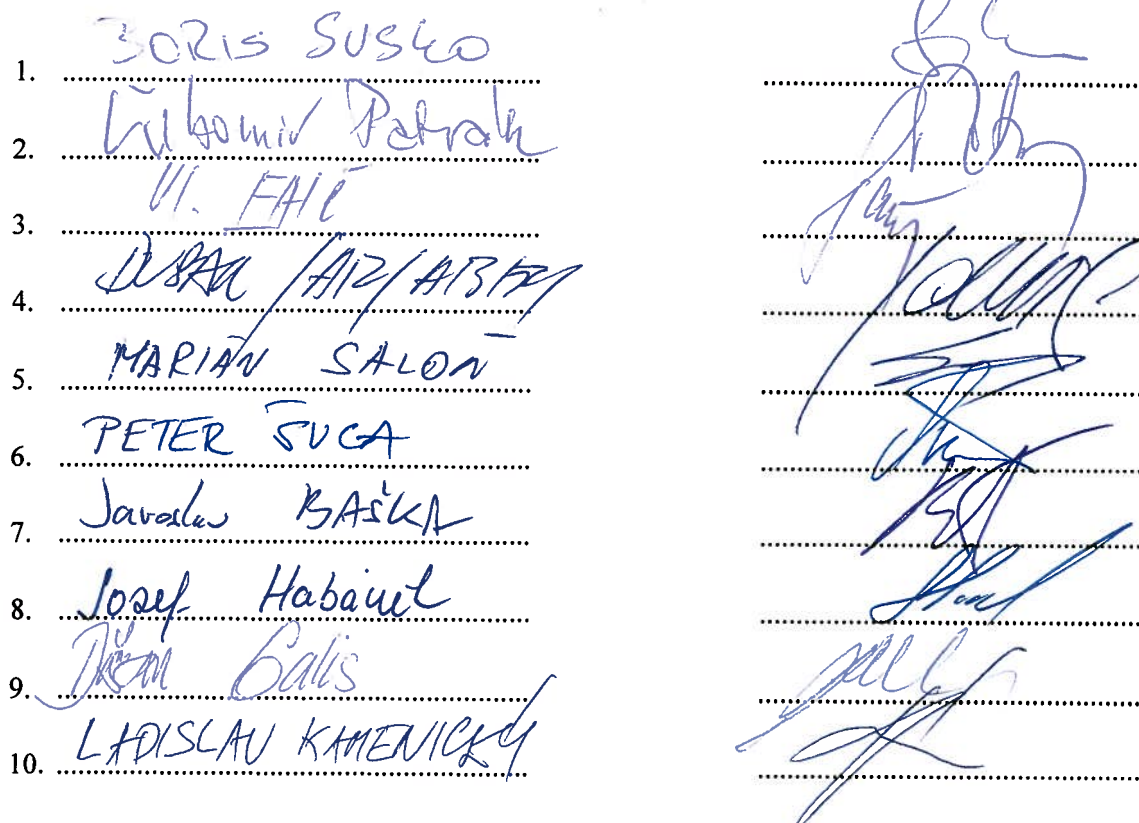 1. BORIS SUSKO
2. Ľubomír Petrák
3. Vl. FAIČ
4. DUŠAN JARJABEK
5. MARIÁN SALOŇ
6. PETER ŠUCA
7. Jaroslav BAŠKA
8. Jozef Habánik
9. Dušan Galis
10. LADISLAV KAMENICKÝ